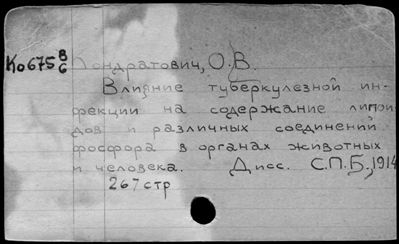 Ко675 В/6 Кондратович, О.В.
Влияние туберкулезной ин-
фекции на содержание липои
дов и различных соединений
фосфора в органах животных
и человека. Дисс. С.П.Б., 1914
267 стр